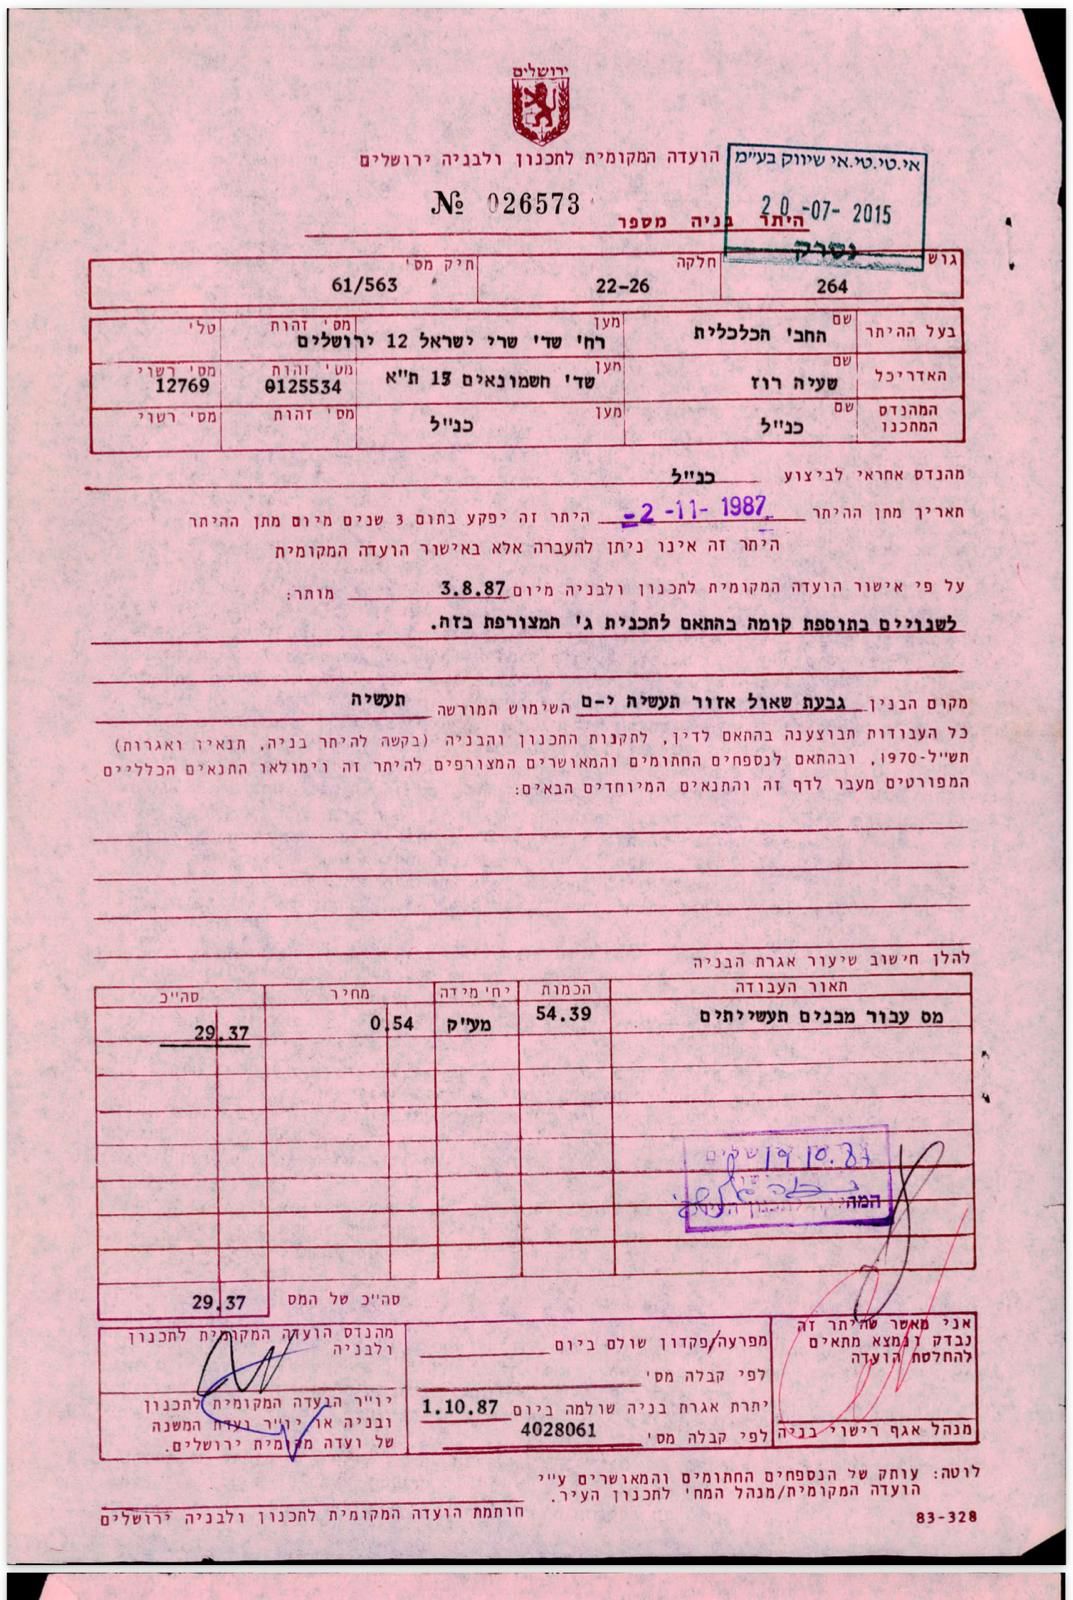 ירושלים
הועדה המקומית לתכנון ולבניה ירושלים
אי.טי.טי.אי שיווק בע"מ
20 -07- 2015
נסרק
№ 026573
היתר בניה מספר
גוש 264 חלקה 22-26 תיק מס' 61/563
בעל ההיתר שם החב' הכלכלית מען רח' שד' שרי ישראל 12 ירושלים מס' זהות טל'
האדריכל שם שעיה רוז מען שד' חשמונאים 13 ת"א מס' זהות 0125534 מס' רשוי 12769
המהנדס המתכנן שם כנ"ל מען כנ"ל מס' זהות מס' רשוי
מהנדס אחראי לביצוע כנ"ל
תאריך מתן ההיתר -2 -11- 1987 היתר זה יפקע בתום 3 שנים מיום מתן ההיתר
היתר זה אינו ניתן להעברה אלא באישור הועדה המקומית
על פי אישור הועדה המקומית לתכנון ולבניה מיום 3.8.87 מותר:
לשנויים בתוספת קומה בהתאם לתכנית ג' המצורפת בזה.
מקום הבנין גבעת שאול אזור תעשיה י-ם השימוש המורשה תעשיה
כל העבודות תבוצענה בהתאם לדין, לתקנות התכנון והבניה (בקשה להיתר בניה, תנאיו ואגרות)
תש"ל-1970, ובהתאם לנספחים החתומים והמאושרים המצורפים להיתר זה וימולאו התנאים הכלליים
המפורטים מעבר לדף זה והתנאים המיוחדים הבאים:
להלן חישוב שיעור אגרת הבניה
תאור העבודה הכמות יח' מידה מחיר סה"כ
מס עבור מבנים תעשייתים 54.39 מע"ק 0.54 29.37
19.10.87
המה
סה"כ של המס 29.37
אני מאשר שהיתר זה
נבדק ונמצא מתאים
להחלטת הועדה
מנהל אגף רישוי בניה
מפרעה/פקדון שולם ביום
לפי קבלה מס'
יתרת אגרת בניה שולמה ביום 1.10.87
לפי קבלה מס' 4028061
מהנדס הועדה המקומית לתכנון
ולבניה
יו"ר הועדה המקומית לתכנון
ובניה או יו"ר ועדת המשנה
של ועדה מקומית ירושלים.
לוטה: עותק של הנספחים החתומים והמאושרים ע"י
הועדה המקומית/מנהל המח' לתכנון העיר.
חותמת הועדה המקומית לתכנון ולבניה ירושלים
83-328